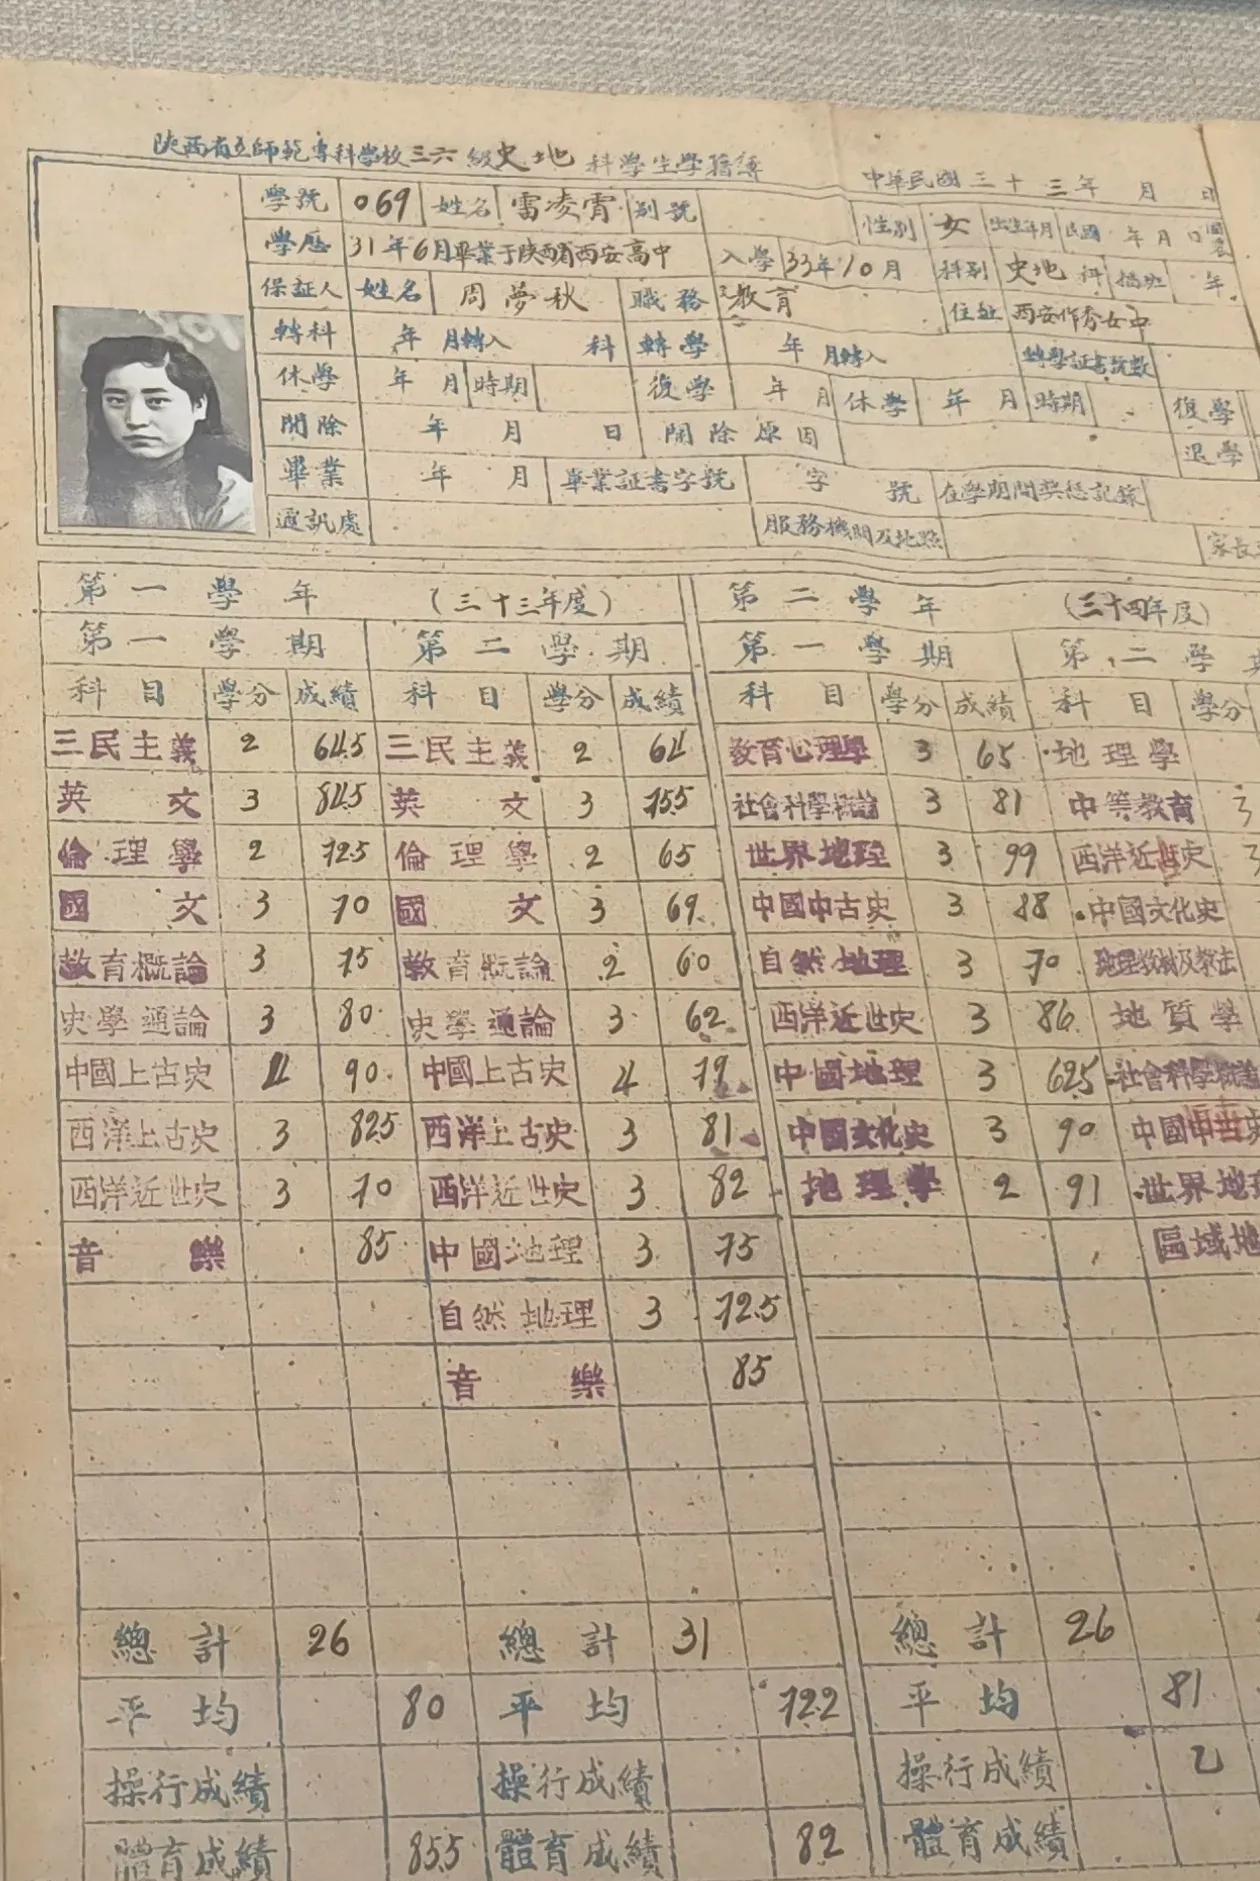 陝西省立師範專科學校三六級史地科學生學籍簿 中華民國三十三年 月 日
學號 069 姓名 雷凌霄 別號 性別 女 出生年月 民國 年 月 日
學歷 31年6月畢業于陝西省西安高中 入學 33年10月 科別 史地科 插班 年
保証人 姓名 周夢秋 職務 教育 住址 西安作秀女中
轉科 年 月轉入 科 轉學 年 月轉入 轉學証書號數
休學 年 月 時期 復學 年 月 休學 年 月 時期 復學
開除 年 月 日 開除原因 退學
畢業 年 月 畢業証書字號 字 號 在學期間獎懲記錄
通訊處 服務機關及地點 家長
第一學年 (三十三年度) 第二學年 (三十四年度)
第一學期 第二學期 第一學期 第二學
科目 學分 成績 科目 學分 成績 科目 學分 成績 科目 學分
三民主義 2 64.5 三民主義 2 64 教育心理學 3 65 地理學
英文 3 84.5 英文 3 75.5 社會科學概論 3 81 中等教育 3
倫理學 2 72.5 倫理學 2 65 世界地理 3 99 西洋近世史
國文 3 70 國文 3 69 中國中古史 3 88 中國文化史
教育概論 3 75 教育概論 2 60 自然地理 3 70 地理教材及教法
史學通論 3 80 史學通論 3 62 西洋近世史 3 86 地質學
中國上古史 4 90 中國上古史 4 79 中國地理 3 62.5 社會科學概論
西洋上古史 3 82.5 西洋上古史 3 81 中國文化史 3 90 中國中古史
西洋近世史 3 70 西洋近世史 3 82 地理學 2 91 世界地理
音樂 85 中國地理 3 75 區域地
自然地理 3 72.5
音樂 85
總計 26 總計 31 總計 26
平均 80 平均 72.2 平均 81
操行成績 操行成績 操行成績 乙
體育成績 85.5 體育成績 82 體育成績